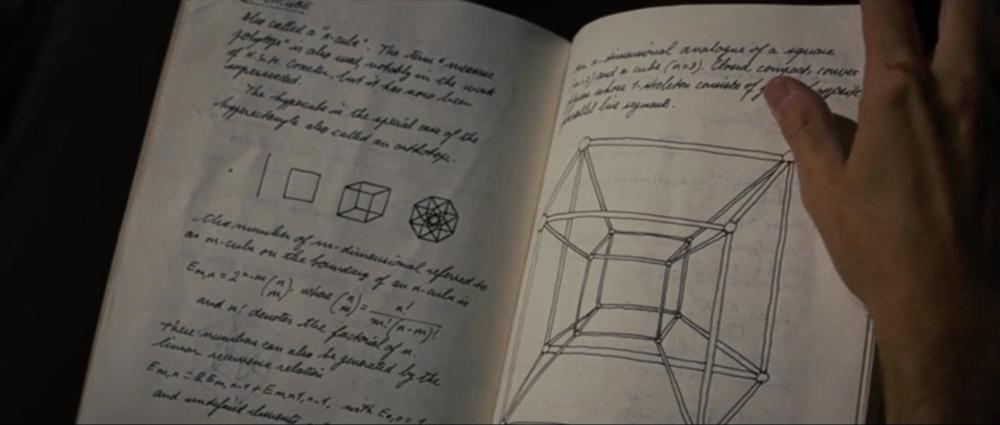 also called a "n-cube". The term "measure
polytope" is also used, notably in the work
of H.S.M. Coxeter, but it has now been
superseded.
The hypercube is the special case of the
hyperrectangle also called an orthotope.
The number of m-dimensional referred to
as m-cube on the boundary of an n-cube is
Em,n = 2^n-m (n m), where (n m) = n! / m!(n-m)!
and n! denotes the factorial of n.
These numbers can also be generated by the
linear recurrence relation
Em,n = 2Em,n-1 + Em-1,n-1, with E0,0 = 1
and undefined elements
an n-dimensional analogue of a square
(n=2) and a cube (n=3). Closed, compact, convex
whose 1-skeleton consists of opposite
parallel line segments.